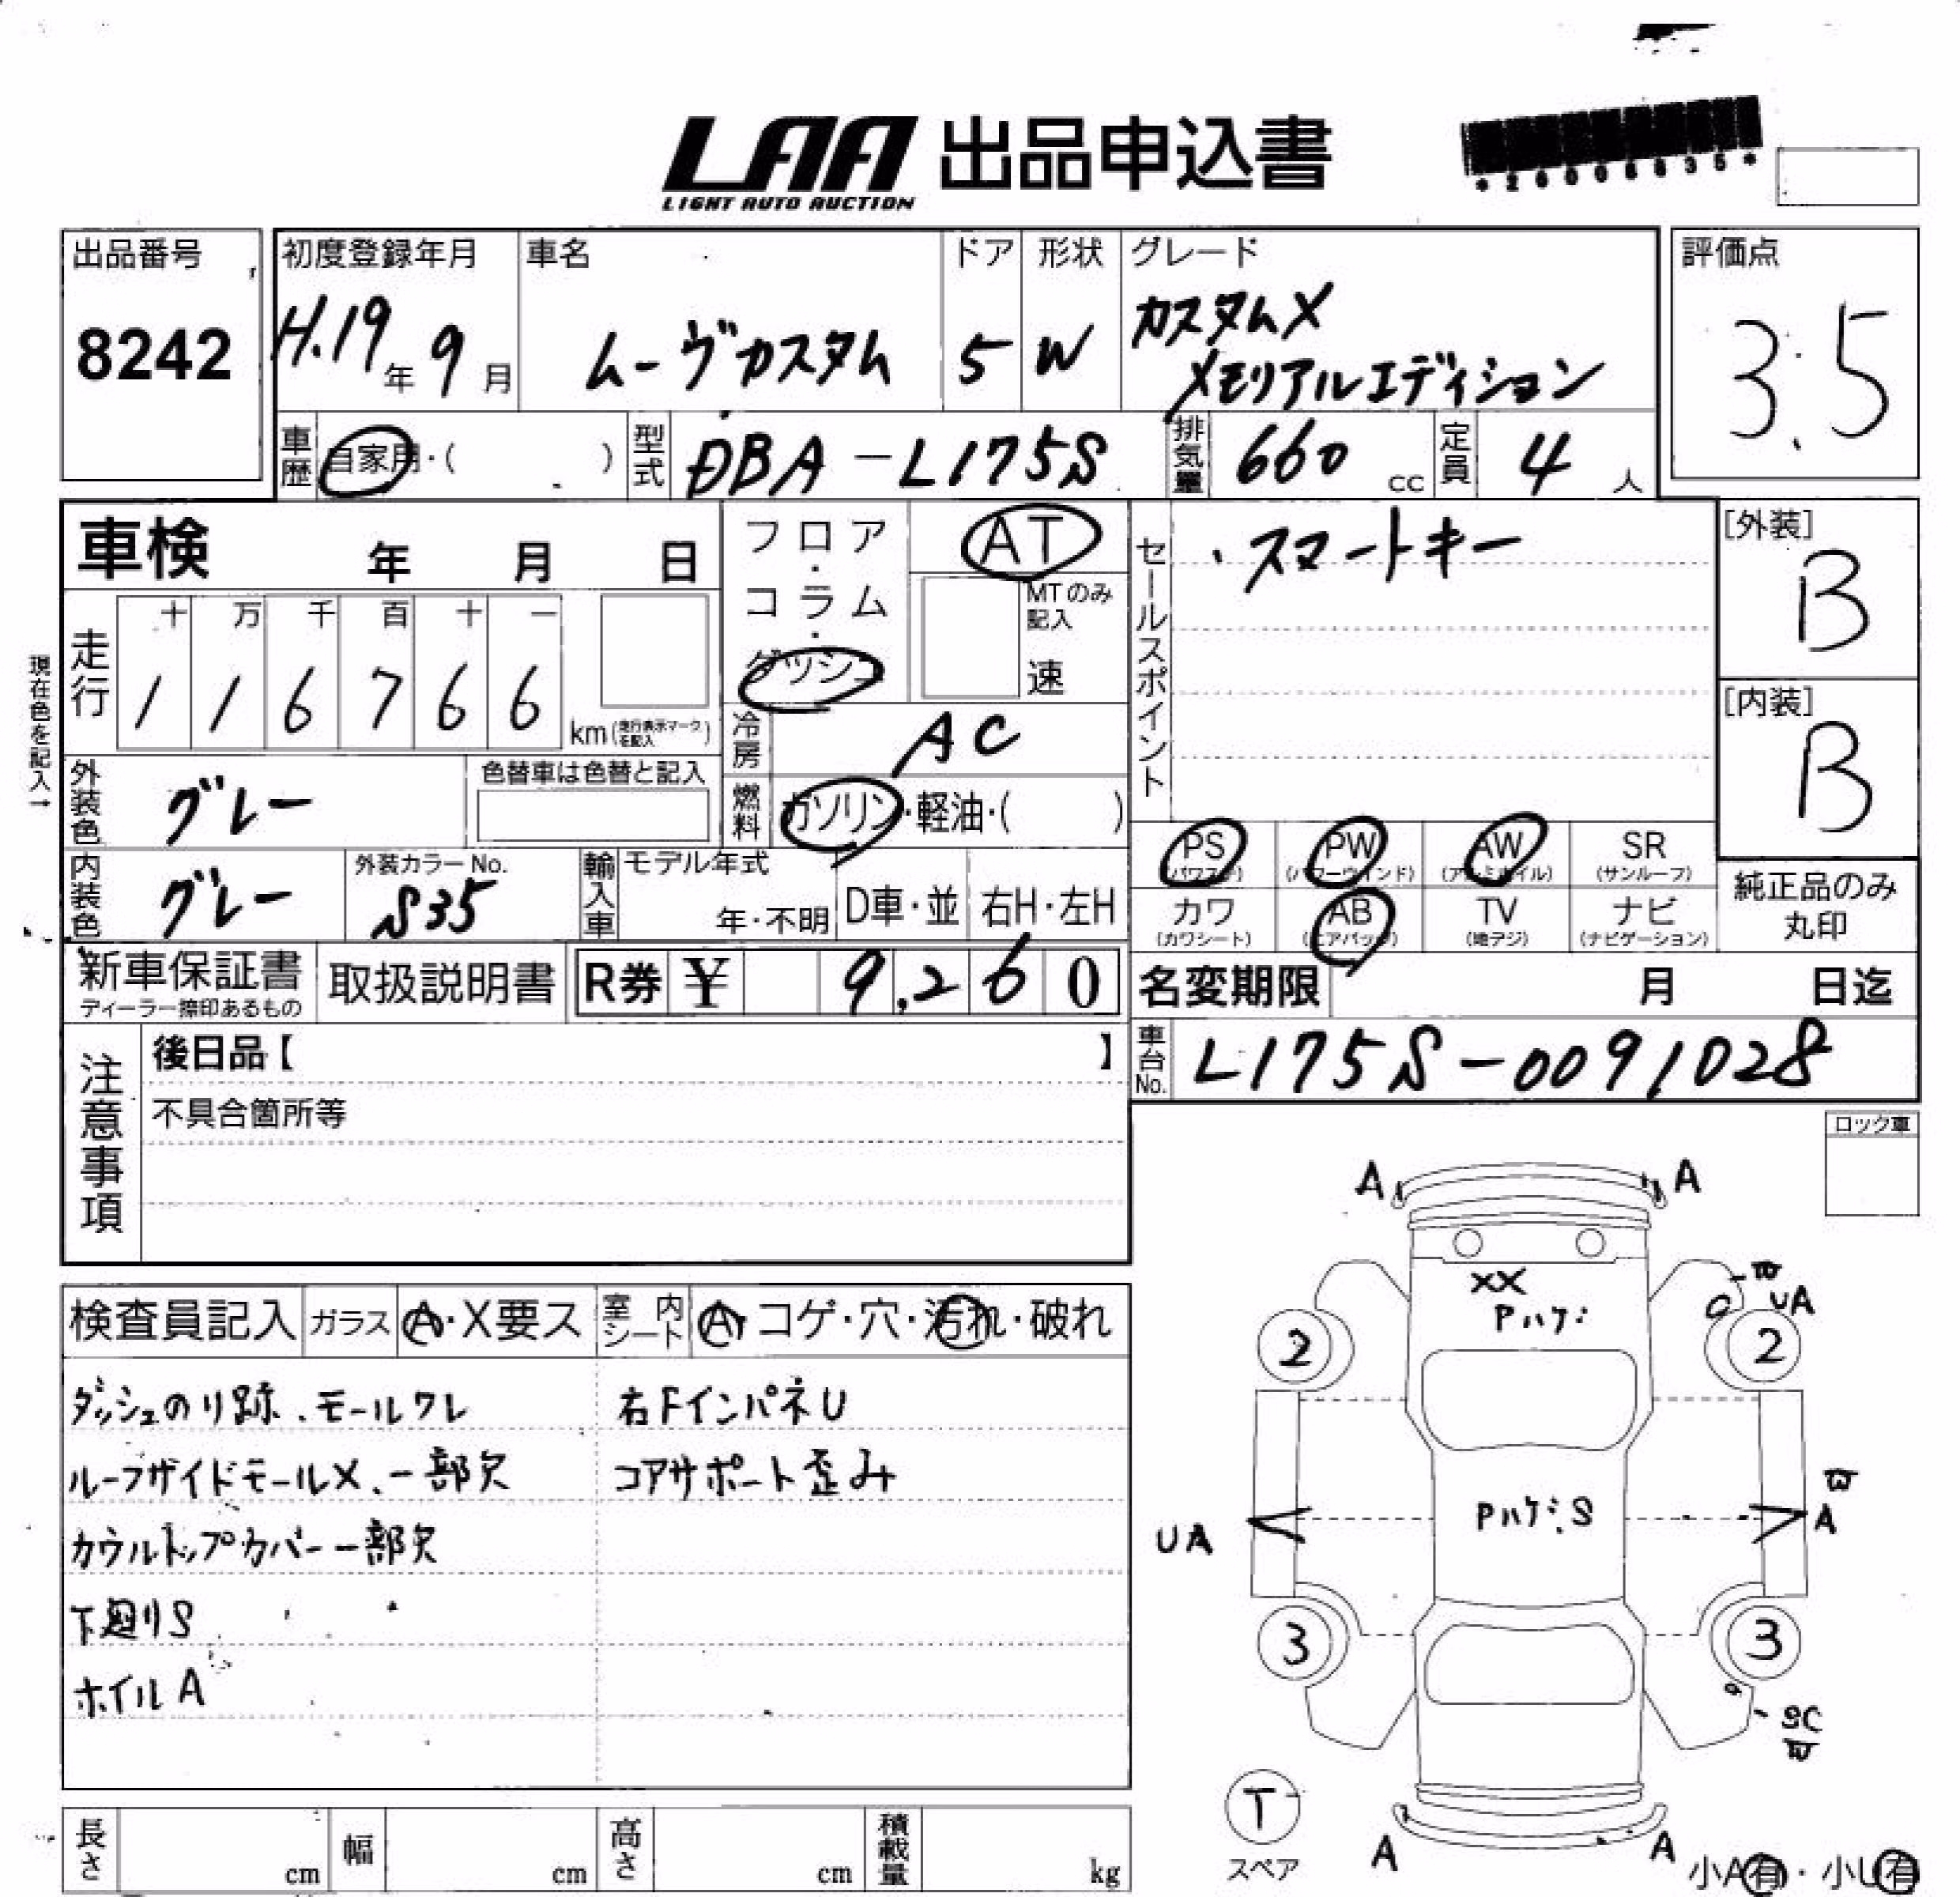 LAA 出品申込書
LIGHT AUTO AUCTION
出品番号
8242
初度登録年月
H.19年 9月
車名
ムーヴカスタム
ドア
5
形状
W
グレード
カスタムX
メモリアルエディション
評価点
3.5
車歴 自家用・( )
型式 DBA-L175S
排気量 660 cc
定員 4 人
車検 年 月 日
フロア・コラム・ダッシュ
AT
MTのみ記入
速
セールスポイント
・スマートキー
[外装]
B
[内装]
B
現在色を記入→
走行
十 万 千 百 十 一
1 1 6 7 6 6
km(走行表示マークを記入)
冷房 AC
外装色 グレー
色替車は色替と記入
燃料 ガソリン・軽油・( )
PS (パワステ)
PW (パワーウィンド)
AW (アルミホイル)
SR (サンルーフ)
カワ (カワシート)
AB (エアバッグ)
TV (地デジ)
ナビ (ナビゲーション)
純正品のみ丸印
内装色 グレー
外装カラーNo. S35
輸入車
モデル年式
年・不明
D車・並
右H・左H
新車保証書
ディーラー捺印あるもの
取扱説明書
R券 ¥ 9,260
名変期限 月 日迄
車台No. L175S-0091028
注意事項
後日品【 】
不具合箇所等
ロック車
検査員記入
ガラス A・X要ス
室内シート A・コゲ・穴・汚れ・破れ
ダッシュのり跡、モールワレ
右FインパネU
ルーフサイドモールX、一部欠
コアサポート歪み
カウルトップカバー一部欠
下廻りS
ホイルA
A A
XX
Pハゲ
W
UA
2 2
PハゲS
UA
W
A
3 3
SC
W
T
スペア
A A
小A有・小U有
長さ cm
幅 cm
高さ cm
積載量 kg